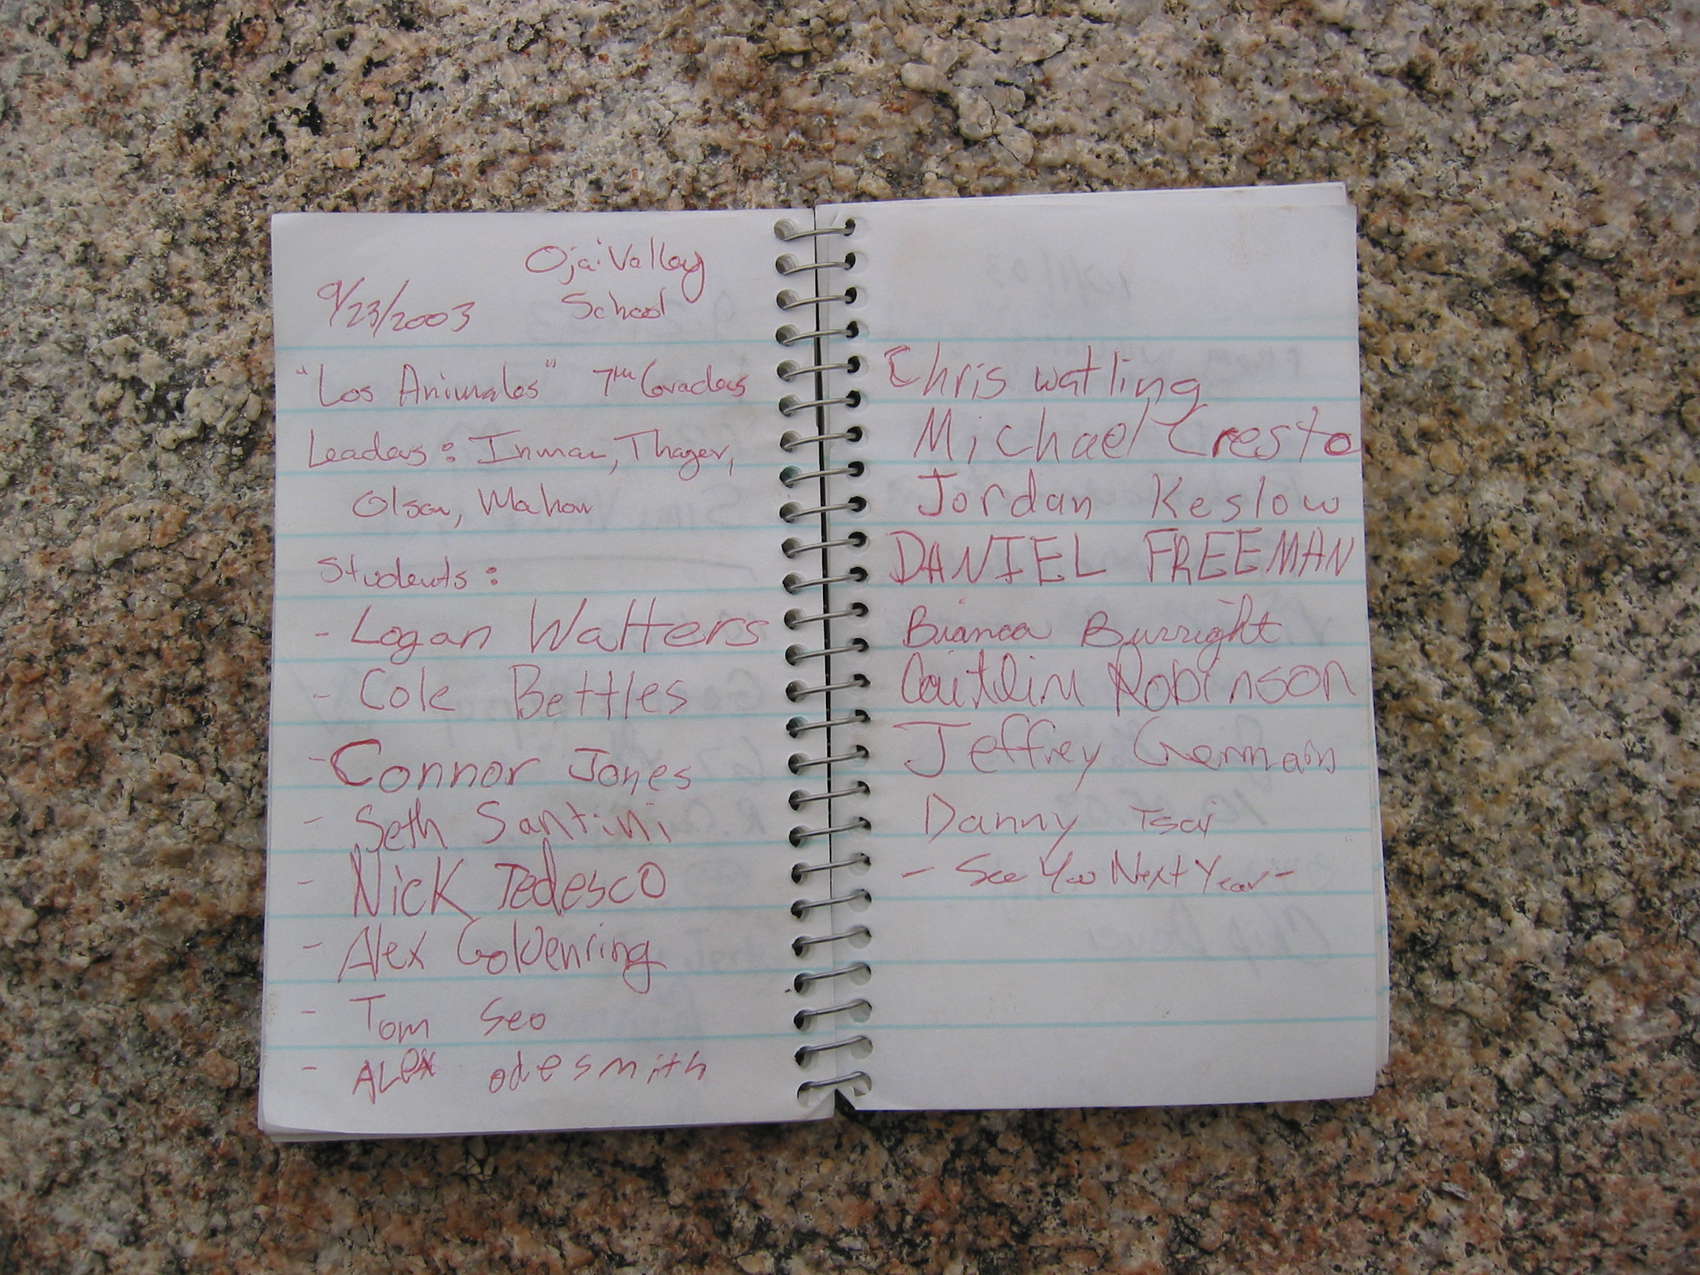 Ojai Valley
School
9/23/2003
"Los Animales" 7th Graders
Leaders: Inman, Thayer,
Olson, Mahon
Students:
- Logan Walters
- Cole Bettles
- Connor Jones
- Seth Santini
- Nick Tedesco
- Alex Goldenring
- Tom Seo
- ALex odesmith
Chris watling
Michael Cresto
Jordan Keslow
DANIEL FREEMAN
Bianca Burright
Caitlin Robinson
Jeffrey Germain
Danny Tsai
- See You Next Year -